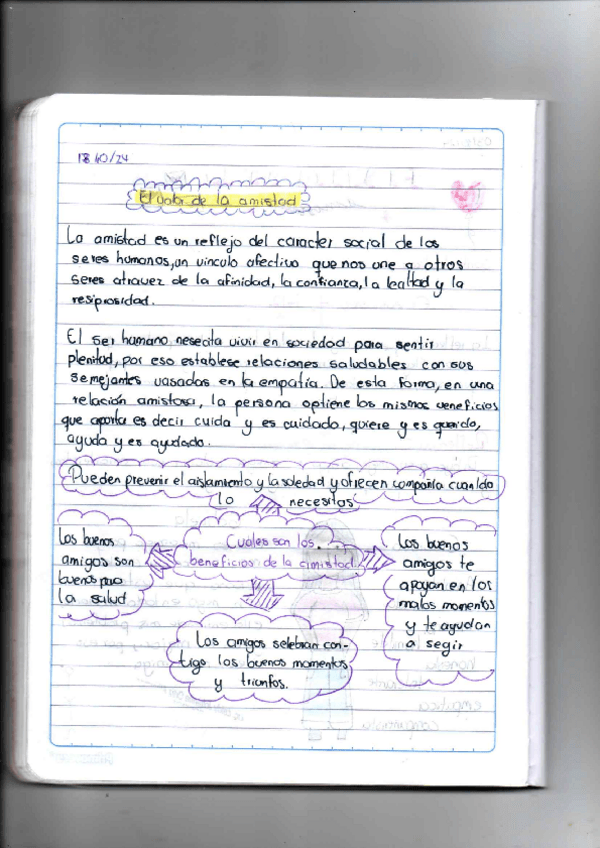 18/10/24
El valor de la amistad
La amistad es un reflejo del caracter social de los
seres humanos, un vinculo afectivo que nos une a otros
seres atravez de la afinidad, la confianza, la lealtad y la
resiprosidad.
El ser humano nesecita vivir en sociedad para sentir
plenitud, por eso establese relaciones saludables con sus
semejantes vasadas en la empatía. De esta forma, en una
relación amistosa, la persona optiene los mismos veneficios
que aporta es decir cuida y es cuidado, quiere y es querido,
ayuda y es ayudado.
Pueden prevenir el aislamiento y la soledad y ofrecen compañia cuando
lo necesitas
Cuales son los
beneficios de la amistad
Los buenos
amigos son
buenos para
la salud
Los buenos
amigos te
apoyan en los
malos momentos
y te ayudan
a segir
Los amigos selebran con-
tigo los buenos momentos
y triunfos.